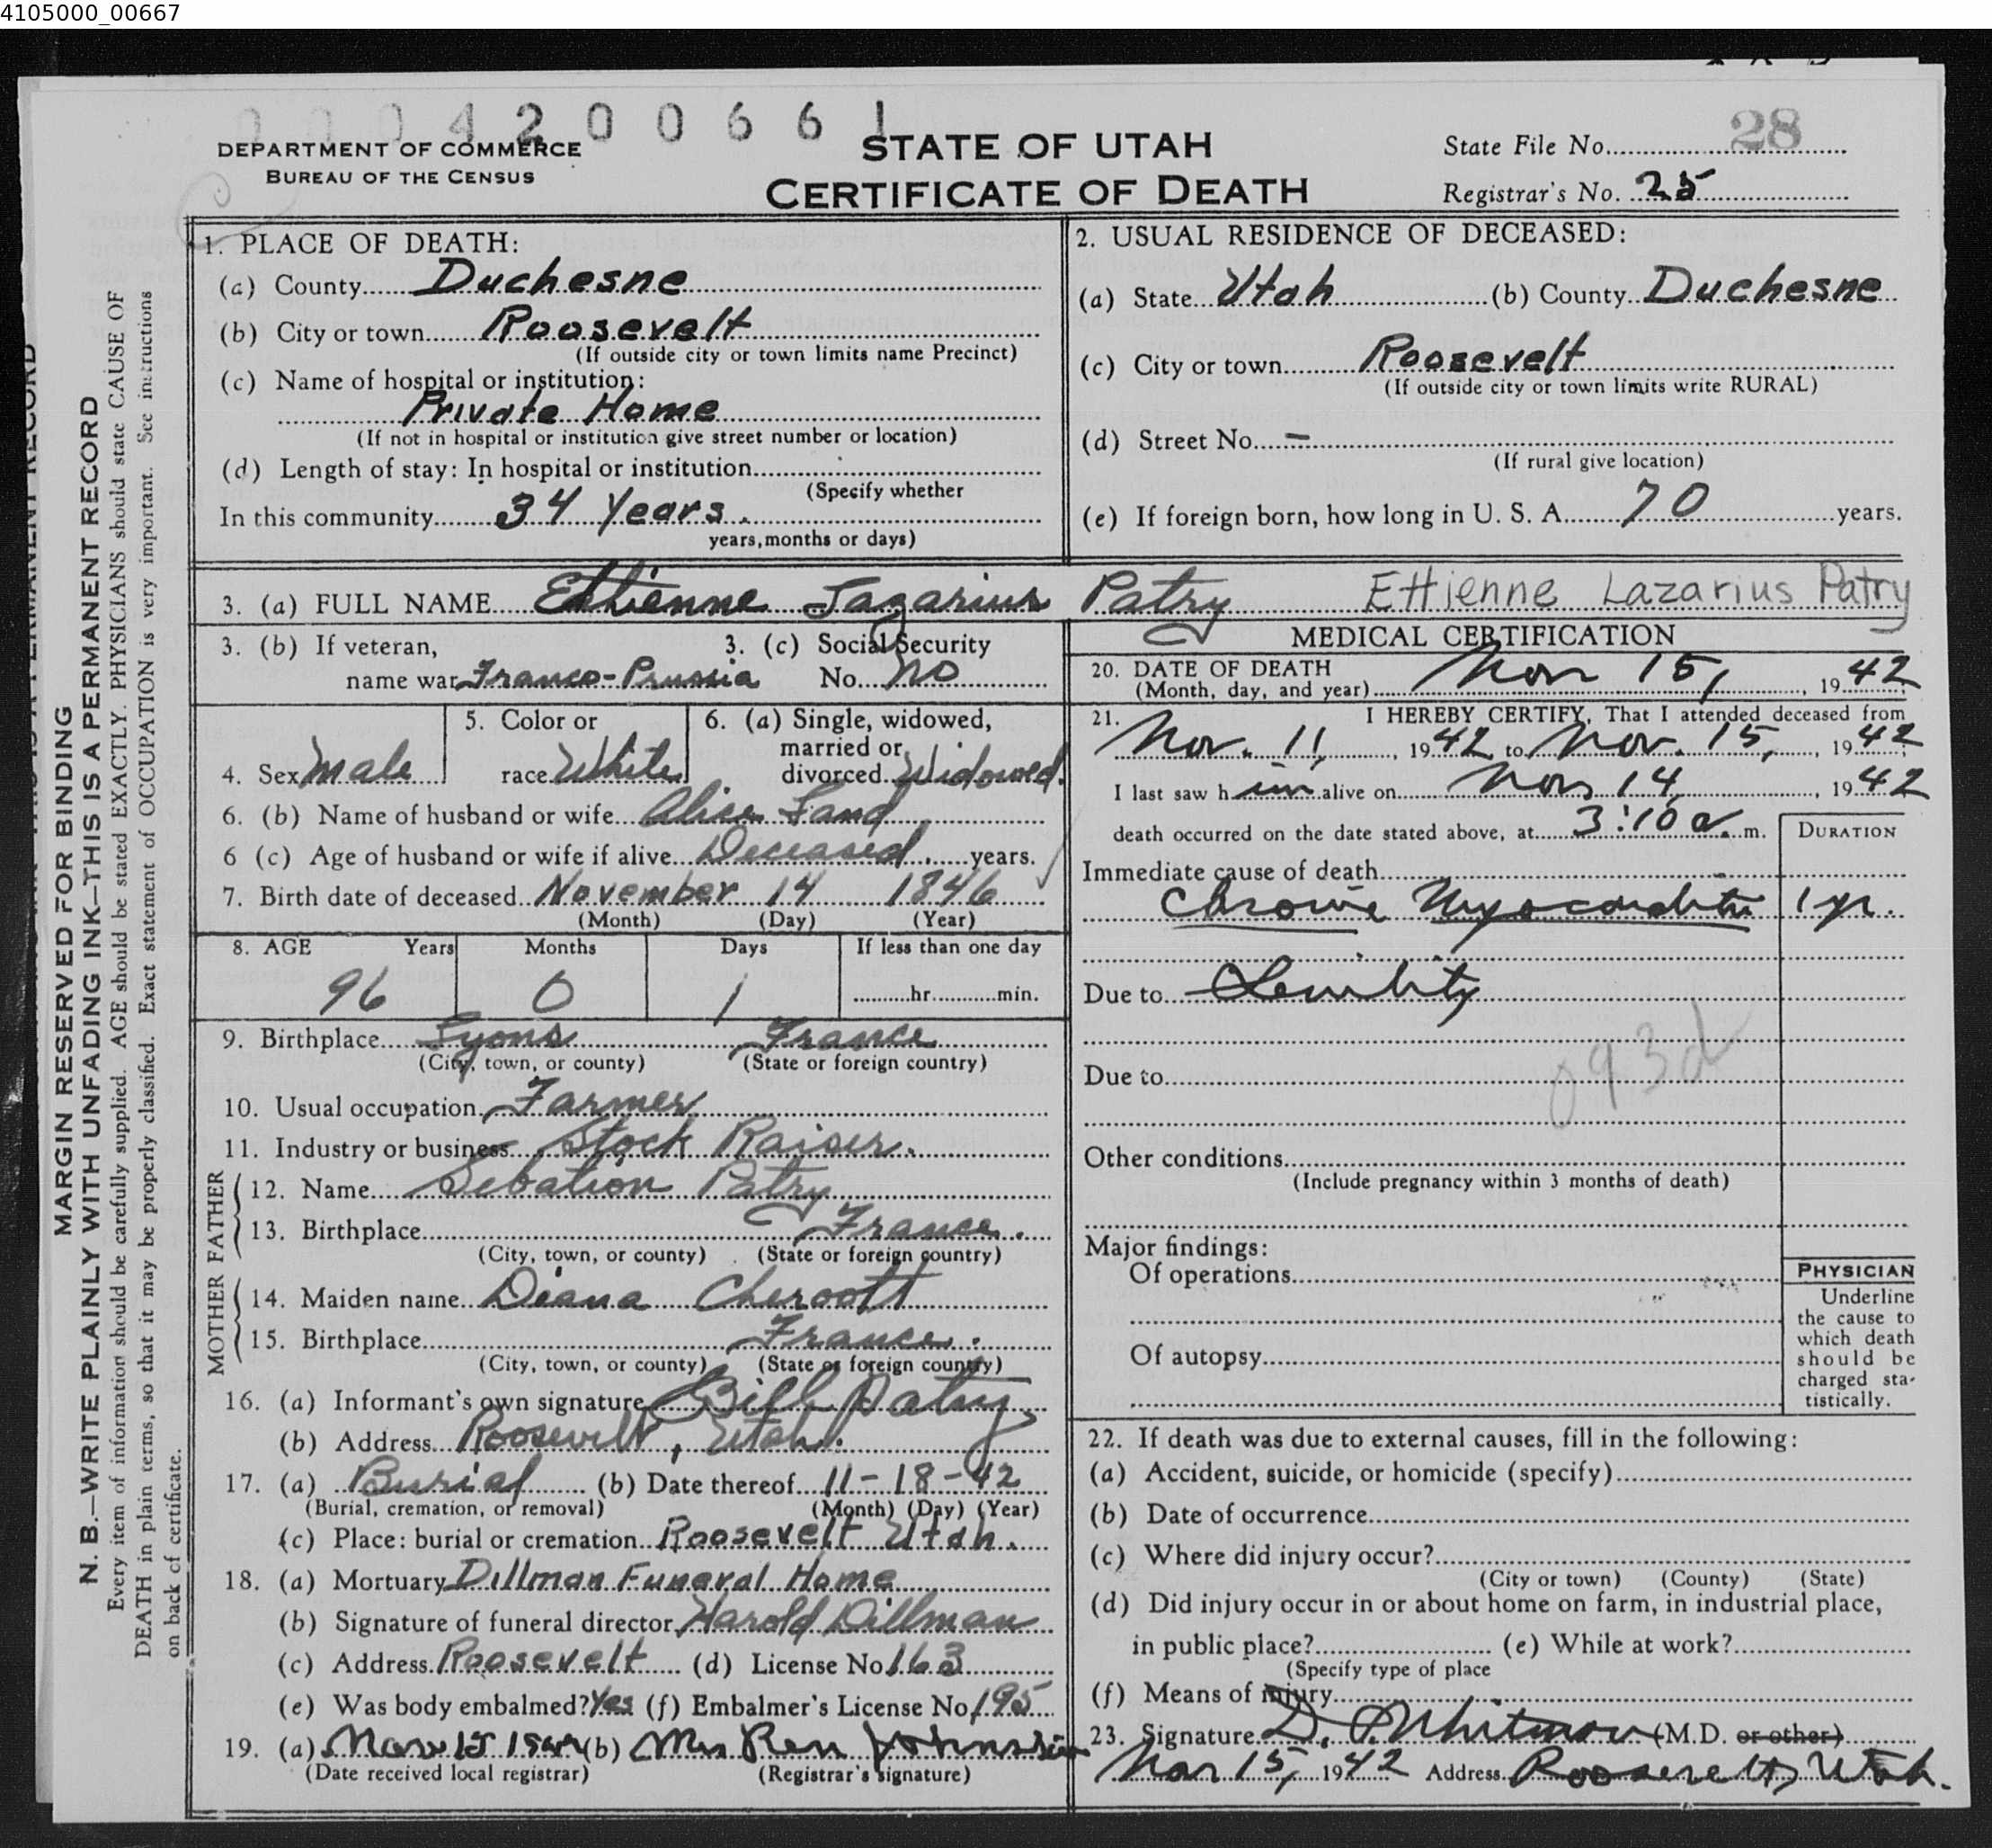 4105000_00667
0004200661
DEPARTMENT OF COMMERCE
BUREAU OF THE CENSUS
STATE OF UTAH
CERTIFICATE OF DEATH
State File No. 28
Registrar's No. 25
MARGIN RESERVED FOR BINDING
N. B.—WRITE PLAINLY WITH UNFADING INK—THIS IS A PERMANENT RECORD
Every item of information should be carefully supplied. AGE should be stated EXACTLY. PHYSICIANS should state CAUSE OF
DEATH in plain terms, so that it may be properly classified. Exact statement of OCCUPATION is very important. See instructions
on back of certificate.
1. PLACE OF DEATH:
(a) County Duchesne
(b) City or town Roosevelt
(If outside city or town limits name Precinct)
(c) Name of hospital or institution:
Private Home
(If not in hospital or institution give street number or location)
(d) Length of stay: In hospital or institution
(Specify whether
In this community 34 Years.
years, months or days)
2. USUAL RESIDENCE OF DECEASED:
(a) State Utah (b) County Duchesne
(c) City or town Roosevelt
(If outside city or town limits write RURAL)
(d) Street No. —
(If rural give location)
(e) If foreign born, how long in U. S. A. 70 years.
3. (a) FULL NAME Ettienne Lazarius Patry Ettienne Lazarius Patry
3. (b) If veteran,
name war Franco-Prussia
3. (c) Social Security
No. no
4. Sex Male
5. Color or
race White
6. (a) Single, widowed,
married or
divorced Widowed.
6. (b) Name of husband or wife Alice Fand
6 (c) Age of husband or wife if alive Deceased. years.
7. Birth date of deceased November 14 1846
(Month) (Day) (Year)
8. AGE Years Months Days If less than one day
96 0 1 hr. min.
9. Birthplace Lyons France
(City, town, or county) (State or foreign country)
10. Usual occupation Farmer
11. Industry or business Stock Raiser.
FATHER
12. Name Sebation Patry
13. Birthplace France.
(City, town, or county) (State or foreign country)
MOTHER
14. Maiden name Diana Cheroott
15. Birthplace France.
(City, town, or county) (State or foreign country)
16. (a) Informant's own signature Bill Patry
(b) Address Roosevelt, Utah.
17. (a) Burial (b) Date thereof 11-18-42
(Burial, cremation, or removal) (Month) (Day) (Year)
(c) Place: burial or cremation Roosevelt Utah.
18. (a) Mortuary Dillman Funeral Home
(b) Signature of funeral director Harold Dillman
(c) Address Roosevelt (d) License No. 163
(e) Was body embalmed? Yes (f) Embalmer's License No. 195
19. (a) Nov 15 1942 (b) Mrs Ren Johnston
(Date received local registrar) (Registrar's signature)
MEDICAL CERTIFICATION
20. DATE OF DEATH
(Month, day, and year) Nov 15, 1942
21. I HEREBY CERTIFY, That I attended deceased from
Nov. 11, 1942 to Nov. 15, 1942
I last saw him alive on Nov 14, 1942
death occurred on the date stated above, at 3:10 a. m.
DURATION
Immediate cause of death
Chronic Myocarditis 1 yr.
Due to Senility
093d
Due to
Other conditions
(Include pregnancy within 3 months of death)
Major findings:
Of operations
Of autopsy
PHYSICIAN
Underline
the cause to
which death
should be
charged sta-
tistically.
22. If death was due to external causes, fill in the following:
(a) Accident, suicide, or homicide (specify)
(b) Date of occurrence
(c) Where did injury occur?
(City or town) (County) (State)
(d) Did injury occur in or about home on farm, in industrial place,
in public place? (e) While at work?
(Specify type of place
(f) Means of injury
23. Signature D. P. Whitmore (M.D. or other)
Nov 15, 1942 Address Roosevelt, Utah.